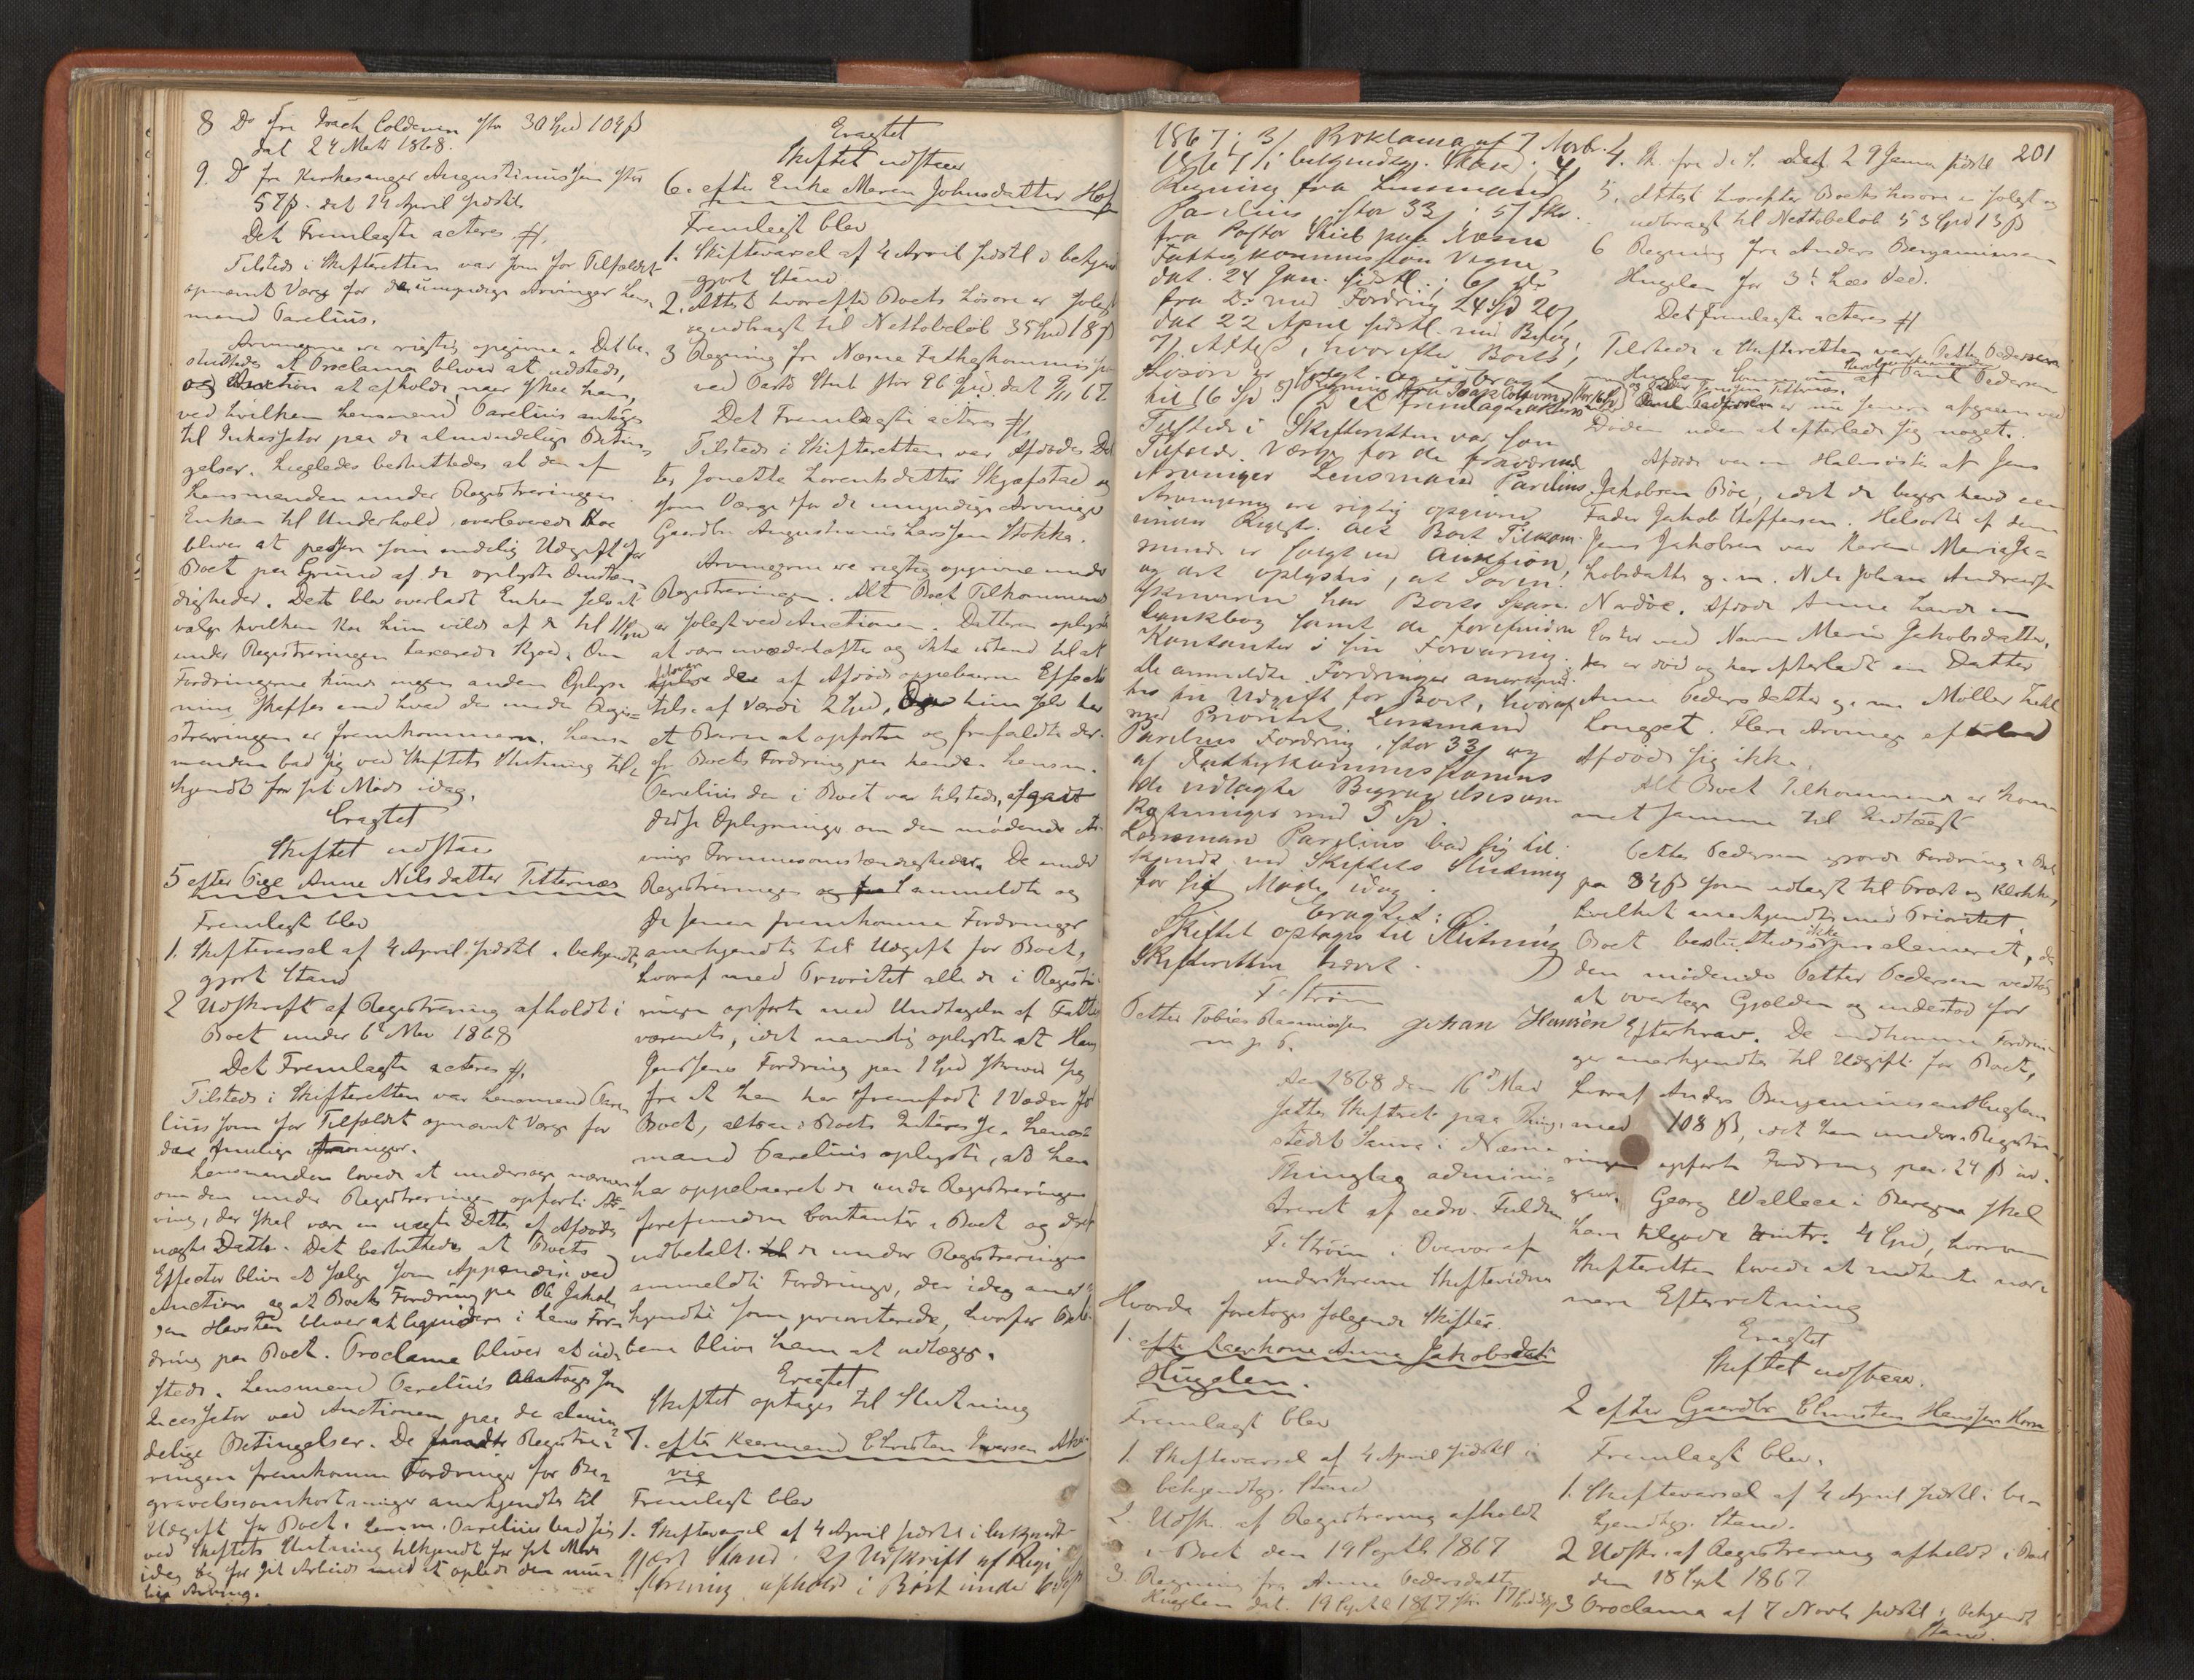 8 Do fra Isach Coldevin stor 30 Spd 109 β
dat 24 Marts 1868.
9. Do fra Kirkesanger Augustinussen stor
57 β. dat 24 April sidstl.
Det Fremlagte acteres #.
Tilstede i Skifteretten var som for Tilfældet
opnævnt Værge for de umyndige Arvinger Lens
mand Parelius.
Arvingerne ere rigtig opgivne. Det be-
sluttedes at Proclama bliver at udstede,
og Auction at afholde naar skee kan,
ved hvilken Lensmand Parelius antages
til Inkassator paa de almindelige Betin
gelser. Ligeledes besluttedes at den af
Lensmanden under Registreringen
Enken til Underhold overleverede Koe
bliver at passere som endelig Udgift for
Boet paa Grund af de oplyste Omstæn
digheder. Det blev overladt Enken selv at
vælge hvilken Koe hun vilde af de til 11 Spd
under Registreringen taxerede Kjør. Om
Fordringerne kunde ingen anden Oplys
ning skaffes end hvad der under Regi-
streringen er fremkommen. Lens-
manden bad sig ved Skiftets Slutning til-
kjendt for sit Møde idag.
Eragtet
Skiftet udstaar
5 efter Pige Anne Nilsdatter Titternæs
Fremlagt blev
1. Skiftevarsel af 4 April sidstl i bekjendt
gjort Stand
2 Udskrift af Registrering afholdt i
Boet under 6te Mai 1868
Det Fremlagte acteres #.
Tilstede i Skifteretten var Lensmand Pare
lius som for Tilfældet opnævnt Værge for
den mulige Arvinger.
Lensmanden lovede at undersøge nærmere
om den under Registreringen opførte Ar-
ving, der skal være en uægte Datter af Afdødes
uægte Datter. Det besluttedes at Boets
Effecter bliver at sælge som Appendix ved
Auction og at Boets Fordring paa Ole Jakob
sen Havsten bliver at liquidere i hans For
dring paa Boet. Proclama bliver at ud
stede. Lensmand Parelius antages som
Incassator ved Auctionen paa de almin
delige Betingelser. De Registre-
ringen fremkomne Fordringer for Be-
gravelsesomkostninger anerkjendtes til
Udgift for Boet. Lensm. Parelius bad sig
ved Skiftets Slutning tilkjendt for sit Møde
idag og for sit Arbeide med at oplede den mu-
lige Arving.
Eragtet
Skiftet udstaar
6. efter Enke Maren Johnsdatter Hof
Fremlagt blev
1. Skiftevarsel af 4 April sidstl i bekjendt
gjort Stand
2. Attest hvorefter Boets Løsøre er solgt
og udbragt til Nettobeløb 35 Spd 18 β
3 Regning fra Næsne Fattigkommission
ved Pastor Skut stor 96 Spd dat 9/11 67.
Det Fremlagte acteres #.
Tilstede i Skifteretten var Afdødes Dat
ter Jonetta Lorentsdatter Skjæfstad og
som Værge for de umyndige Arvinger
Gaardbr Augustinus Larssen Stokka.
Arvingerne ere rigtig opgivne under
Registreringen. Alt Boet Tilkommende
er solgt ved Auctionen. Datteren oplyste
at være uvederhæftig og ikke istand til at
de af Afdøde oppebaarne Effecter
tils. af Værdi 2 Spd, Da hun selv har
et Barn at opfostre og frafaldtes der-
for Boets Fordring paa hende. Lensm.
Parelius der i Boet var tilstede, afgav
disse Oplysninger om den mødende Ar-
vings Formuesomstændigheder. De under
Registreringen og anmeldte og
de senere fremkomne Fordringer
anerkjendtes til Udgift for Boet,
hvoraf med Prioritet alle de i Registre
ringen opførte med Undtagelse af Fattig
væsenets, idet nemlig oplyste at Hans
Jenssens Fordring paa 1 Spd skriver sig
fra at han har fremfødt 1 Væder for
Boet, altsaa i Boets Interesse. Lens-
mand Parelius oplyste, at han
har oppebaaret de under Registreringen
forefundne Contanter i Boet og deraf
udbetalt de under Registreringen
anmeldte Fordringer, der idag aner-
kjendtes som prioriterede, hvorfor Belø
bene bliver ham at udlægge.
Eragtet
Skiftet optages til Slutning
7. efter Kaarmand Christen Iversen Alt-
vig
Fremlagt blev
1. Skiftevarsel af 4 April sidstl i bekjendt-
gjort Stand. 2) Udskrift af Regi
strering afholdt i Boet under 6te Sept
1867; 3) Proklama af 7 Novbr.
1867 i bekjendtgj. Stand; 4
Regning fra Lensmand
Parelius, stor 33 β; 5) Skr.
fra Pastor Skut paa Næsne
Fattigkommissions Vegne
dat. 24 Jan. sidstl.; 6 do
fra Do med Fordring 24 Spd 20 β
dat 22 April sidstl. med Bilag,
7) Attest, hvorefter Boets
Løsøre er solgt og udbragt
til 16 Spd 8) Regning fra Isak Coldevin stor 16 β
Det fremlagte acteres
Tilstede i Skifteretten var som
Tilfælde Værge for de fraværende
Arvinger Lensmand Parelius.
Arvingerne ere rigtig opgivne
under Regist. Alt Boet Tilkom-
mende er solgt ved Auktion,
og det oplystes, at Soren-
skriveren har Boets Spare-
bankbog samt de forefundne
Kontanter i sin Forvaring.
De anmeldte Fordringer anerkjend-
tes til Udgift for Boet, hvoraf
med Prioritet Lensmand
Parelius Fordring, stor 33 β og
af Fattigkommissionens
de udlagte Begravelsesom
kostninger med 5 Spd.
Lensmand Parelius bad sig til-
kjendt ved Skiftets Slutning
for sit Møde idag.
Eragtet:
Skiftet optages til Slutning
Skifteretten hævet.
F. Strøm
Petter Tobias Rasmussen Johan Hansen
m. p. P.
Aar 1868 den 16de Mai
sattes Skifteret paa Thing-
stedet Sauva i Næsne
Thinglag admini-
streret af edsv. Fuldm
F. Strøm i Overvær af
underskrevne Skiftevidner
Hvorda foretoges følgende Skifter.
1. efter Kaarkone Anne Jakobsdatr
Hugelen.
Fremlagt blev
1. Skiftevarsel af 4 April sidstl i
bekjendtgj. Stand
2. Udskr. af Registrering afholdt
i Boet den 19 Septb 1867
3. Regning fra Anne Pedersdatter
Hugelen dat. 19 Septb 1867 stor 17
201
4. Do fra d. S. dat. 29 Janua sidstl
5. Attest hvorefter Boets Løsøre er solgt og
udbragt til Nettobeløb 53 Spd 13 β
6 Regning fra Anders Benjaminsen
Hugelen for 3 Læs Ved.
Det fremlagte acteres #
Tilstede i Skifteretten var Petter Pedersen
Hugelen Paul Pedersen
er nu senere afgaaen ved
Døden uden at efterlade sig noget.
Afdøde var en Halvsøster af Jens
Jakobsen Bøe, idet de begge havde een
Fader Jakob Steffensen. Helsøster af denne
Jens Jakobsen var Karen Maria Ja-
kobsdatter g. m. Nils Johan Andreasse
Nordöe. Afdøde Anne havde en
Søster ved Navn Maria Jakobsdatter,
der er død og har efterladt en Datter
Anne Pedersdatter g. m. Møller Fredr
Longset. Flere Arvinger efterlod
Afdøde sig ikke.
Alt Boet Tilkommende er kom
met samme til Indtægt
Petter Pedersen gjorde Fordring i Boet
paa 84 β som udlagt til Præst og Klokker,
hvilket anerkjendtes med Prioritet.
Boet besluttedes ikke proclameret, da
den mødende Petter Pedersen vedtog
at overtage Gjælden og indestod for
Efterkrav. De indkomne Fordrin
ger anerkjendtes til Udgift for Boet,
hvoraf Anders Benjaminsen Hugelen
med 108 β, idet hans under Registre
ringen opførte Fordring paa 24 β ud-
gaar. Georg Wallace i Bergen skal
have tilgode omtr. 4 Spd, hvorom
Skifteretten lovede at indhente nær-
mere Efterretning
Eragtet
Skiftet udstaar.
2 efter Gaardbr Christen Hanssen Horn
Fremlagt blev.
1. Skiftevarsel af 4 April sidstl i be-
kjendtgj. Stand.
2 Udskr. af Registrering afholdt i Boet
den 18 Sept 1867
3 Proclama af 7 Novb sidstl i bekjendt
Stand.